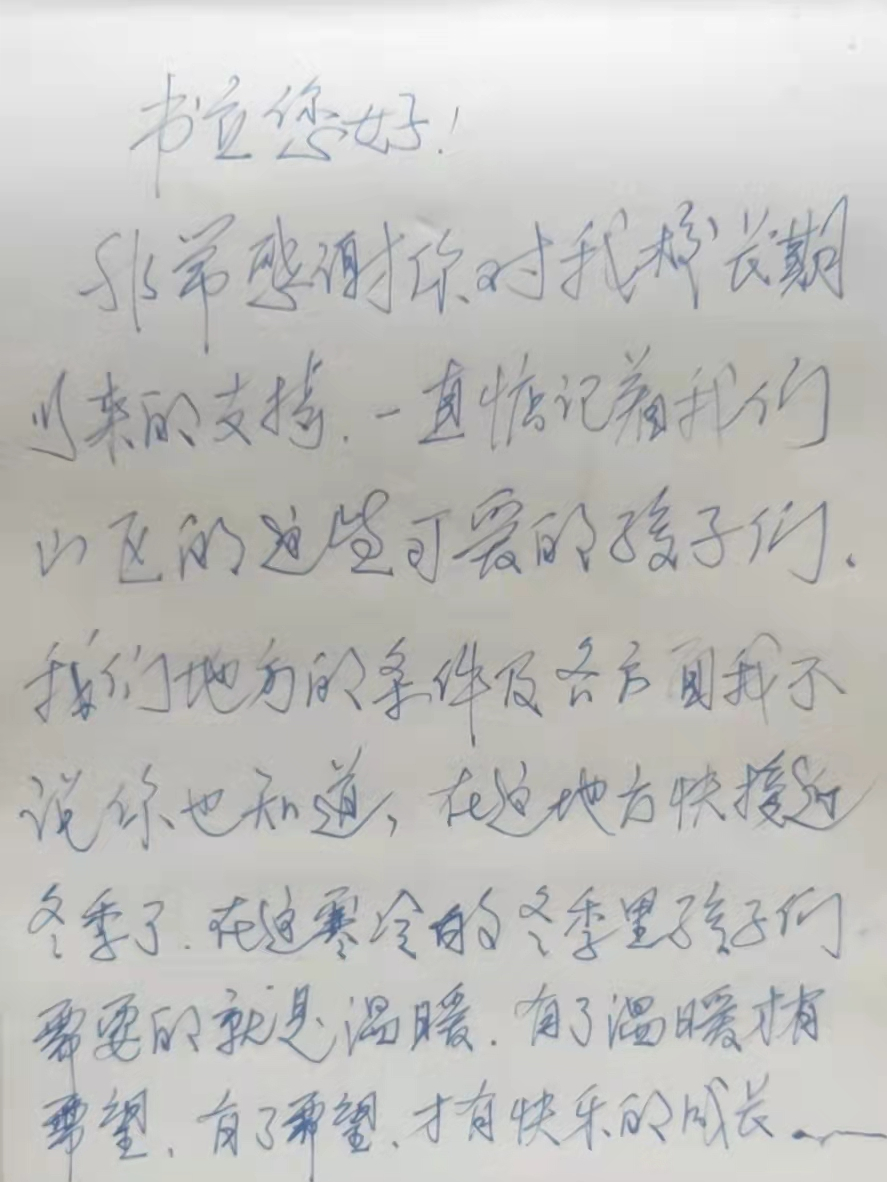 书立您好!
非常感谢你对我校长期
以来的支持.一直惦记着我们
山区的这些可爱的孩子们.
我们地方的条件及各方面我不
说你也知道,在这地方快接近
冬季了.在这寒冷的冬季里孩子们
需要的就是温暖.有了温暖才有
希望.有了希望.才有快乐的成长.